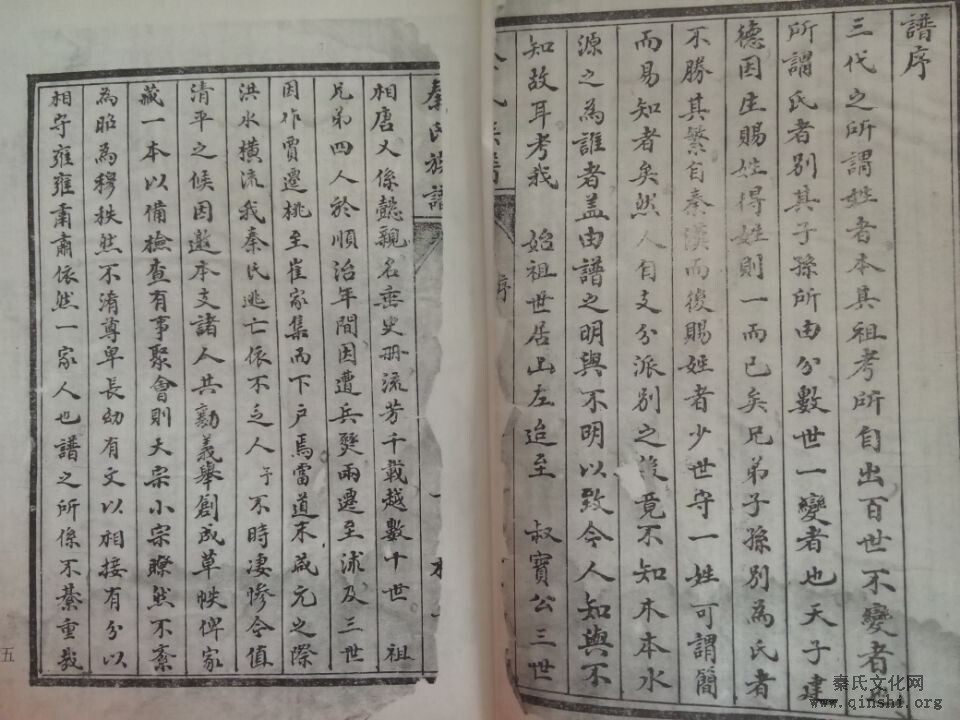 譜序
三代之所謂姓者本其祖考所自出百世不變者也
所謂氏者別其子孫所由分數世一變者也天子建
德因生賜姓得姓則一而已矣兄弟子孫別為氏者
不勝其繁自秦漢而後賜姓者少世守一姓可謂簡
而易知者矣然人自支分派別之後竟不知木本水
源之為誰者盖由譜之明與不明以致令人知與不
知故耳考我 始祖世居山左迨至 叔寶公三世
氏族譜 序
秦氏族譜
相唐又係懿親名垂史冊流芳千載越數十世 祖
兄弟四人於順治年間因遭兵燹兩遷至浦及三世
因作賈遷桃至崔家集而下戶焉當道末咸元之際
洪水橫流我秦氏逃亡依不乏人予不時凄慘今值
清平之候因邀本支諸人共勷義舉創成草帙俾家
藏一本以備檢查有事聚會則大宗小宗瞭然不紊
為昭為穆秩然不淆尊卑長幼有文以相接有分以
相守雍雍肅肅依然一家人也譜之所係不綦重哉
五
秦氏文化网
www.qinshi.org